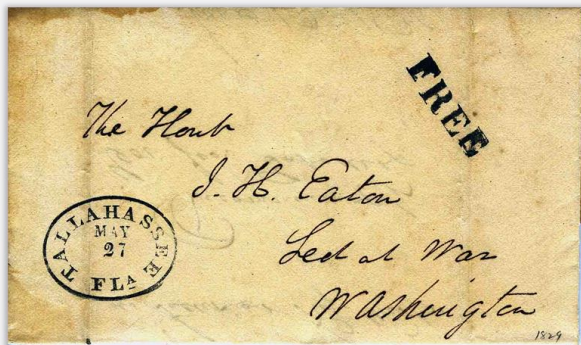 FREE
The Honb
J. H. Eaton
Sec at War
Washington
TALLAHASSEE
MAY
27
FLA
1829